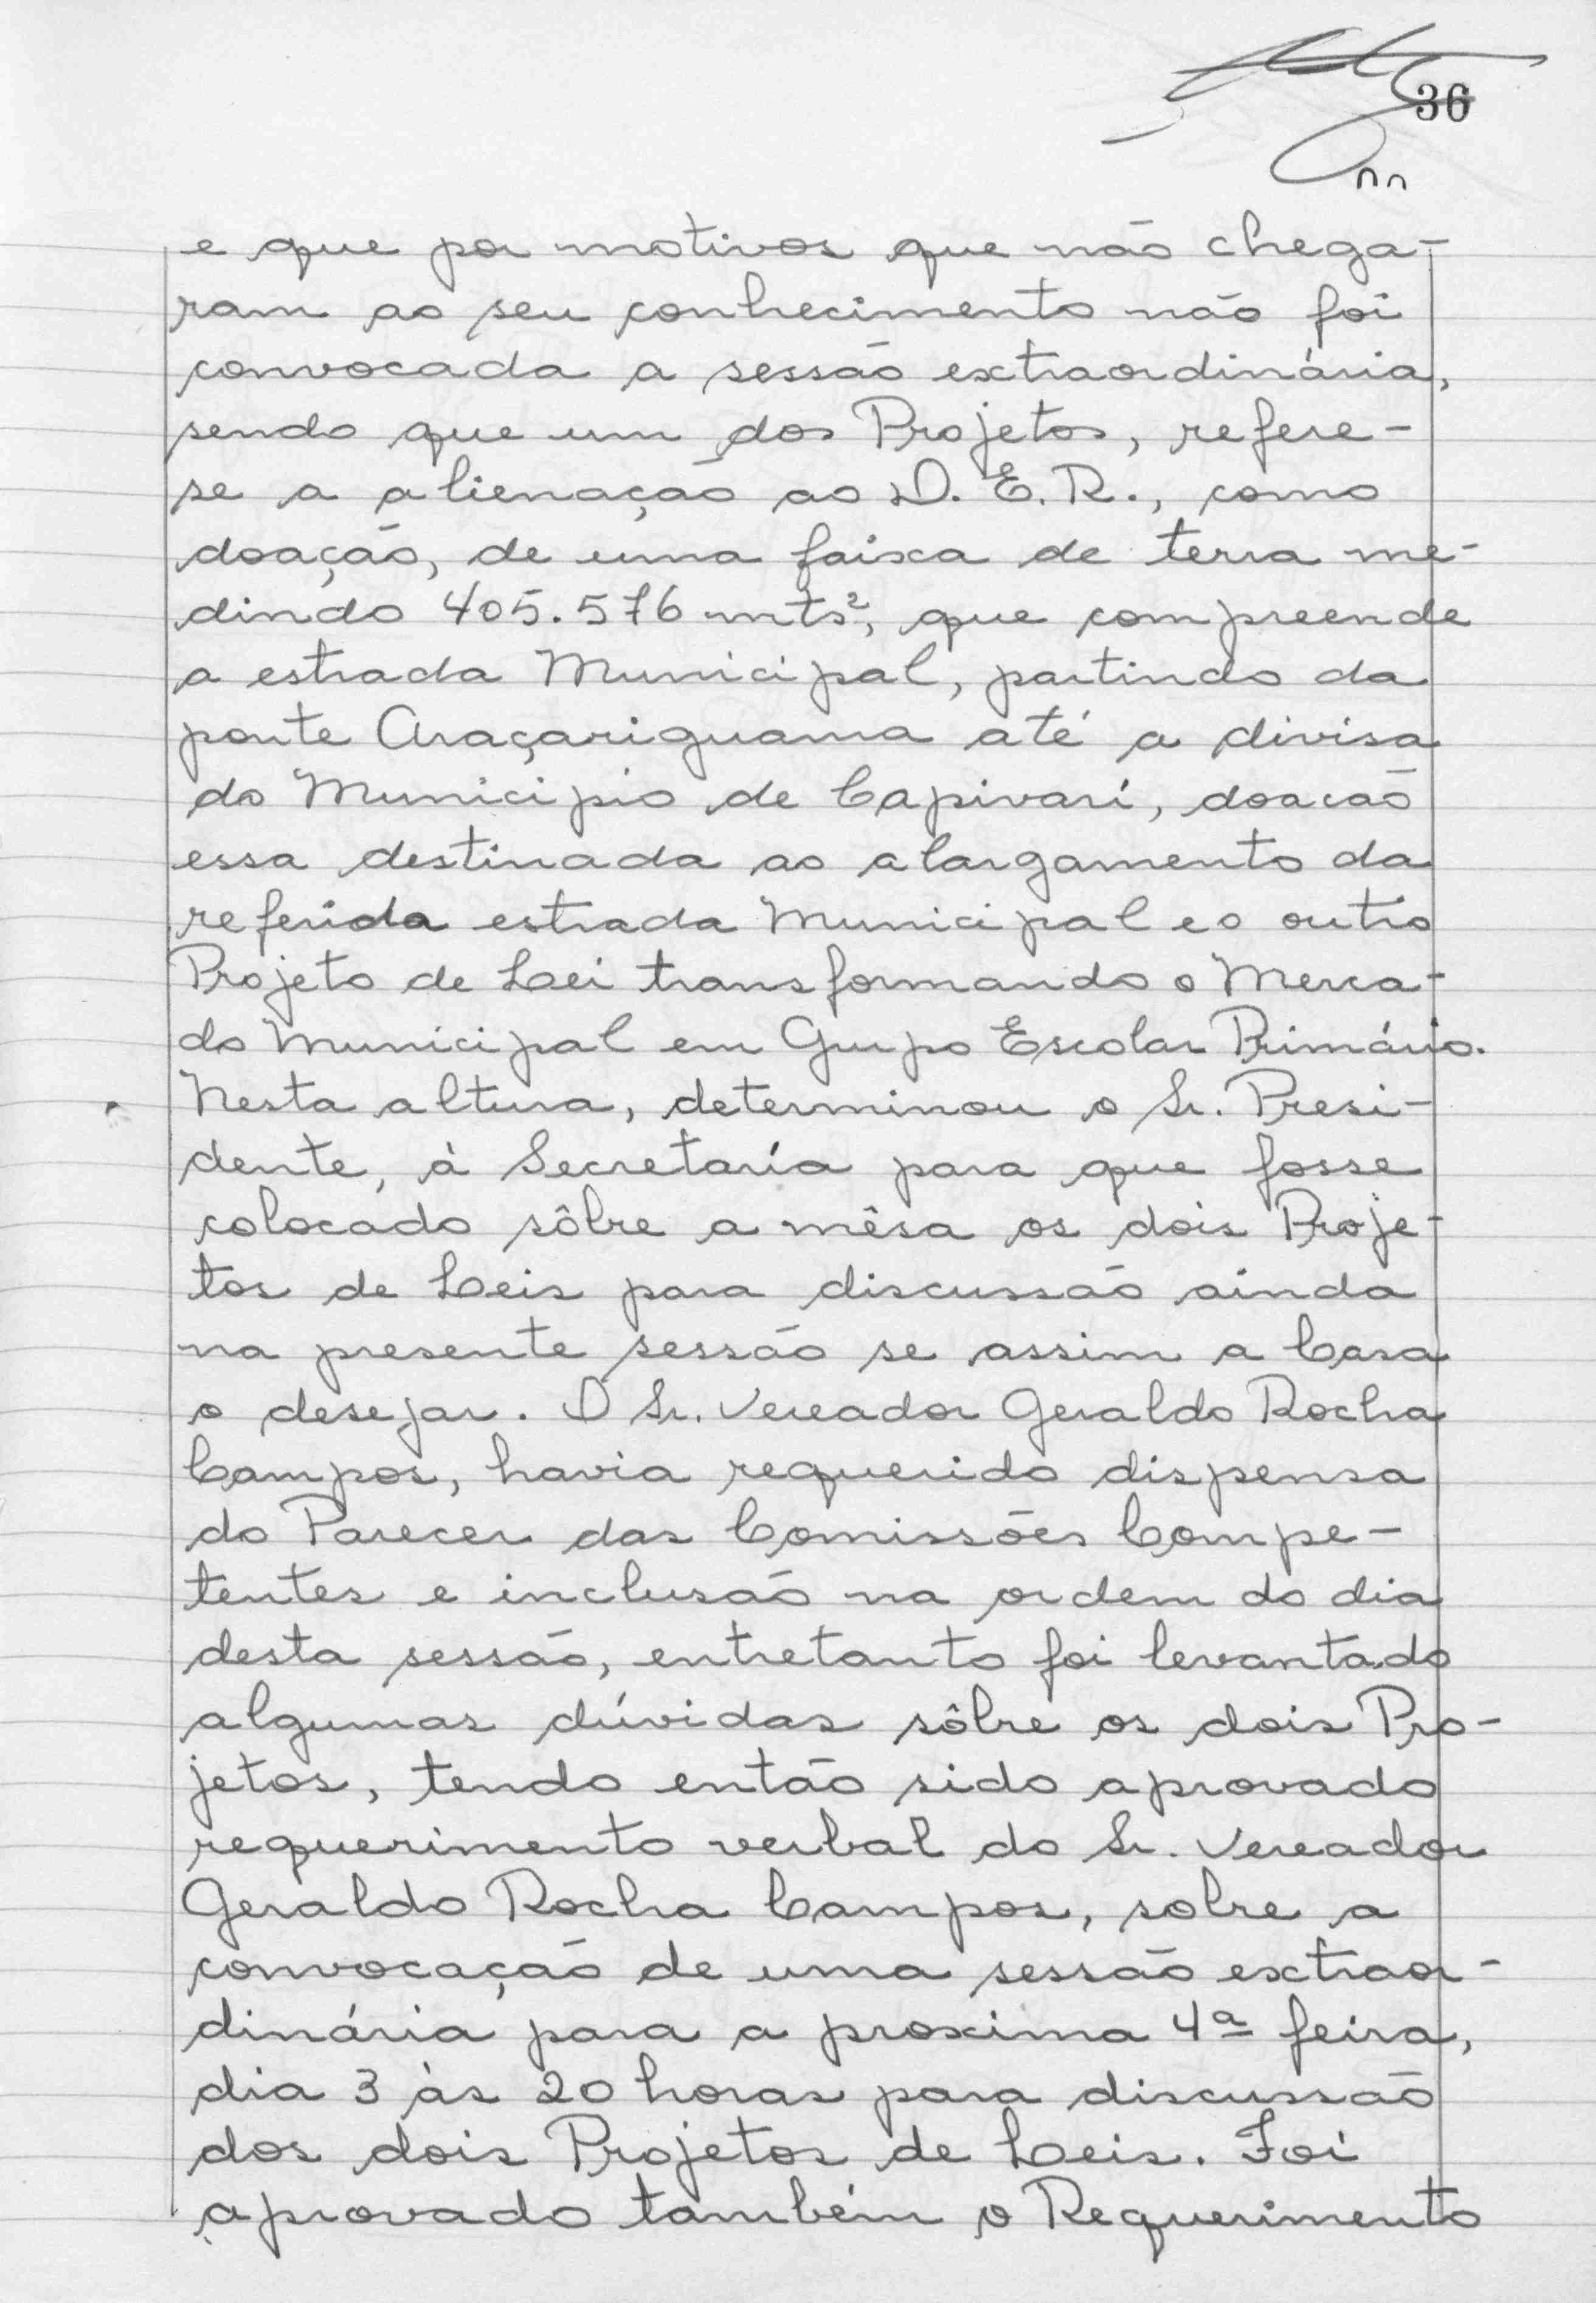 36
e que por motivos que não chega-
ram ao seu conhecimento não foi
convocada a sessão extraordinária,
sendo que um dos Projetos, refere-
se a alienação ao D. E. R., como
doação, de uma faixa de terra me-
dindo 405.576 mts², que compreende
a estrada Municipal, partindo da
ponte Araçariguama até a divisa
do Municipio de Capivarí, doacão
essa destinada ao alargamento da
referida estrada Municipal e o outro
Projeto de Lei transformando o Merca-
do Municipal em Grupo Escolar Primário.
Nesta altura, determinou o Sr. Presi-
dente, à Secretaría para que fosse
colocado sôbre a mêsa os dois Proje-
tos de Leis para discussão ainda
na presente sessão se assim a Casa
o desejar. O Sr. Vereador Geraldo Rocha
Campos, havia requerido dispensa
do Parecer das Comissões Compe-
tentes e inclusão na ordem do dia
desta sessão, entretanto foi levantado
algumas dúvidas sôbre os dois Pro-
jetos, tendo então sido aprovado
requerimento verbal do Sr. Vereador
Geraldo Rocha Campos, sobre a
convocação de uma sessão extraor-
dinária para a proxima 4ª feira,
dia 3 às 20 horas para discussão
dos dois Projetos de Leis. Foi
aprovado também o Requerimento